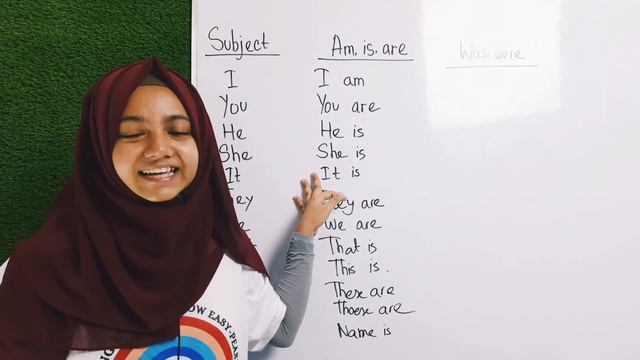 Subject Am. is. are Was. were
I I am
You You are
He He is
She She is
It It is
They are
We are
That is
This is.
These are
Thoese are
Name is
OW EASY-PEA